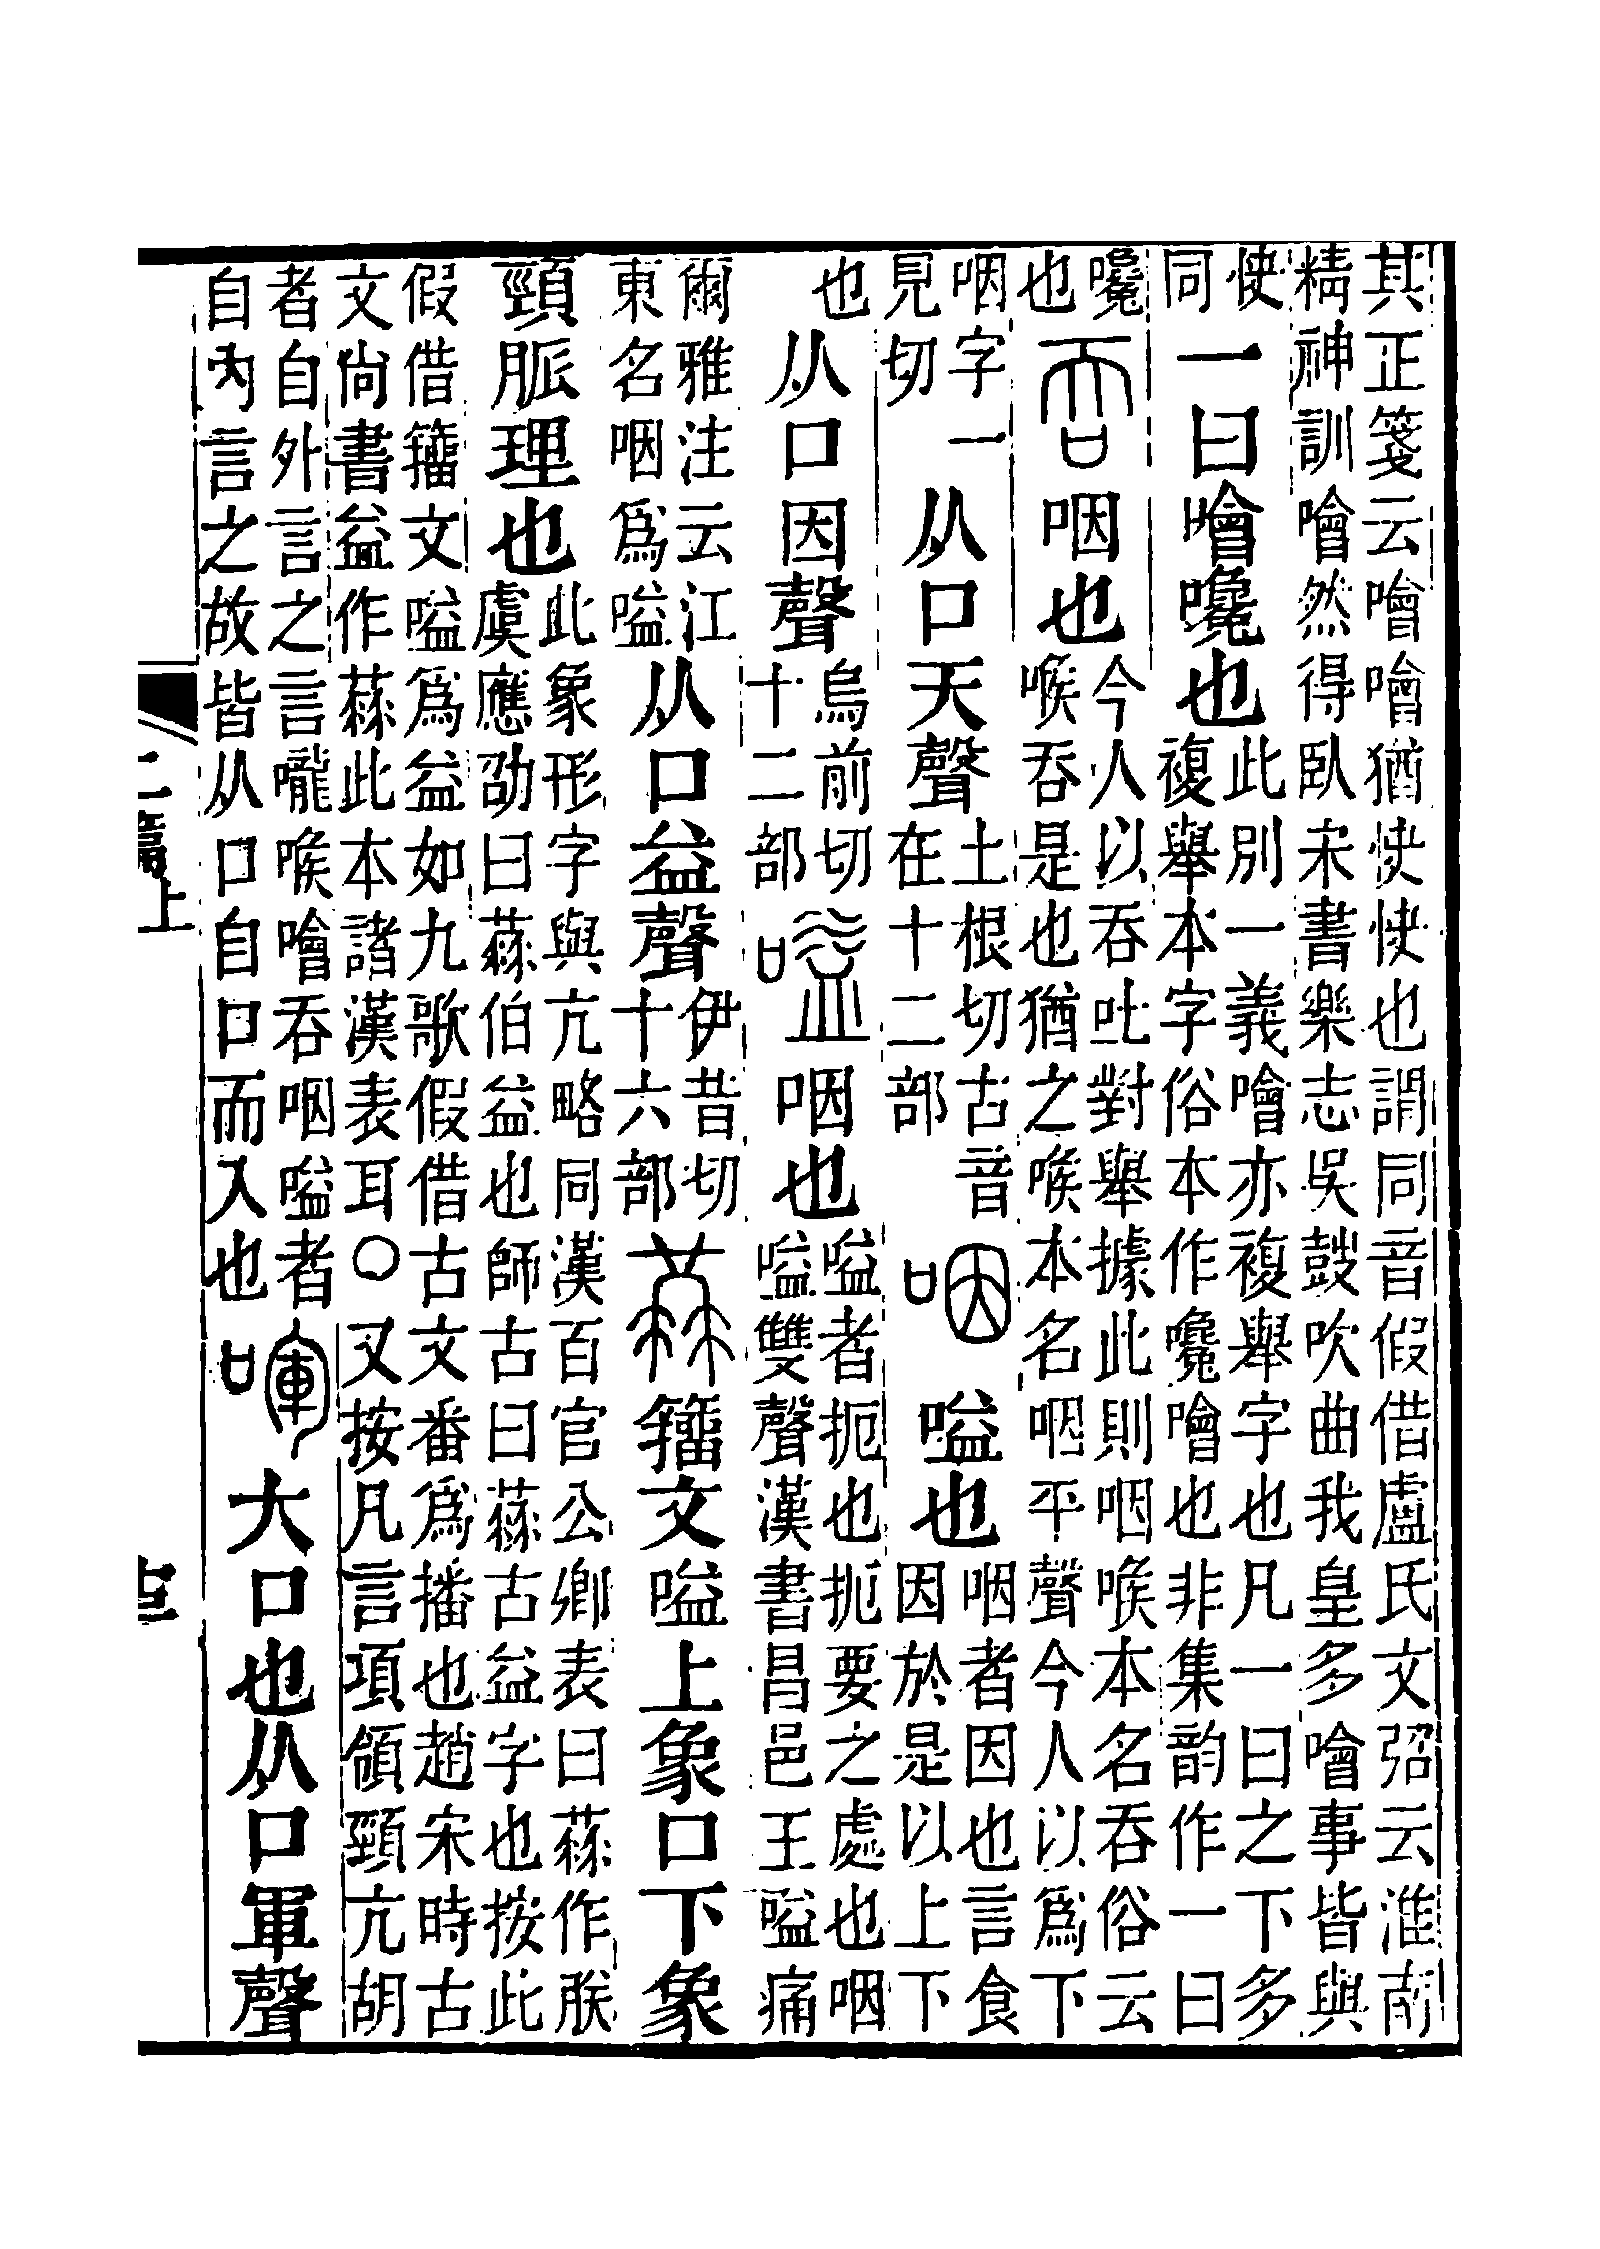 其正箋云噲噲猶快快也謂同音假借盧氏文弨云淮南
精神訓噲然得臥宋書樂志吳鼓吹曲我皇多噲事皆與
快
同
一曰噲嚵也
此別一義噲亦複舉字也凡一曰之下多
複舉本字俗本作嚵噲也非集韵作一曰
嚵
也
吞咽也
今人以吞吐對舉據此則咽喉本名吞俗云
喉吞是也猶之喉本名咽平聲今人以爲下
咽字一
見切
从口天聲
土根切古音
在十二部
咽嗌也
咽者因也言食
因於是以上下
也
从口因聲
烏前切
十二部
嗌咽也
嗌者扼也扼要之處也咽
嗌雙聲漢書昌邑王嗌痛
爾雅注云江
東名咽爲嗌
从口益聲
伊昔切
十六部
籒文嗌上象口下象
頸脈理也
此象形字與亢略同漢百官公卿表曰作朕
虞應劭曰伯益也師古曰古益字也按此
假借籒文嗌爲益如九歌假借古文番爲播也趙宋時古
文尙書益作此本諸漢表耳○又按凡言項領頸亢胡
者自外言之言嚨喉噲吞咽嗌者
自內言之故皆从口自口而入也
喗大口也从口軍聲
二篇上